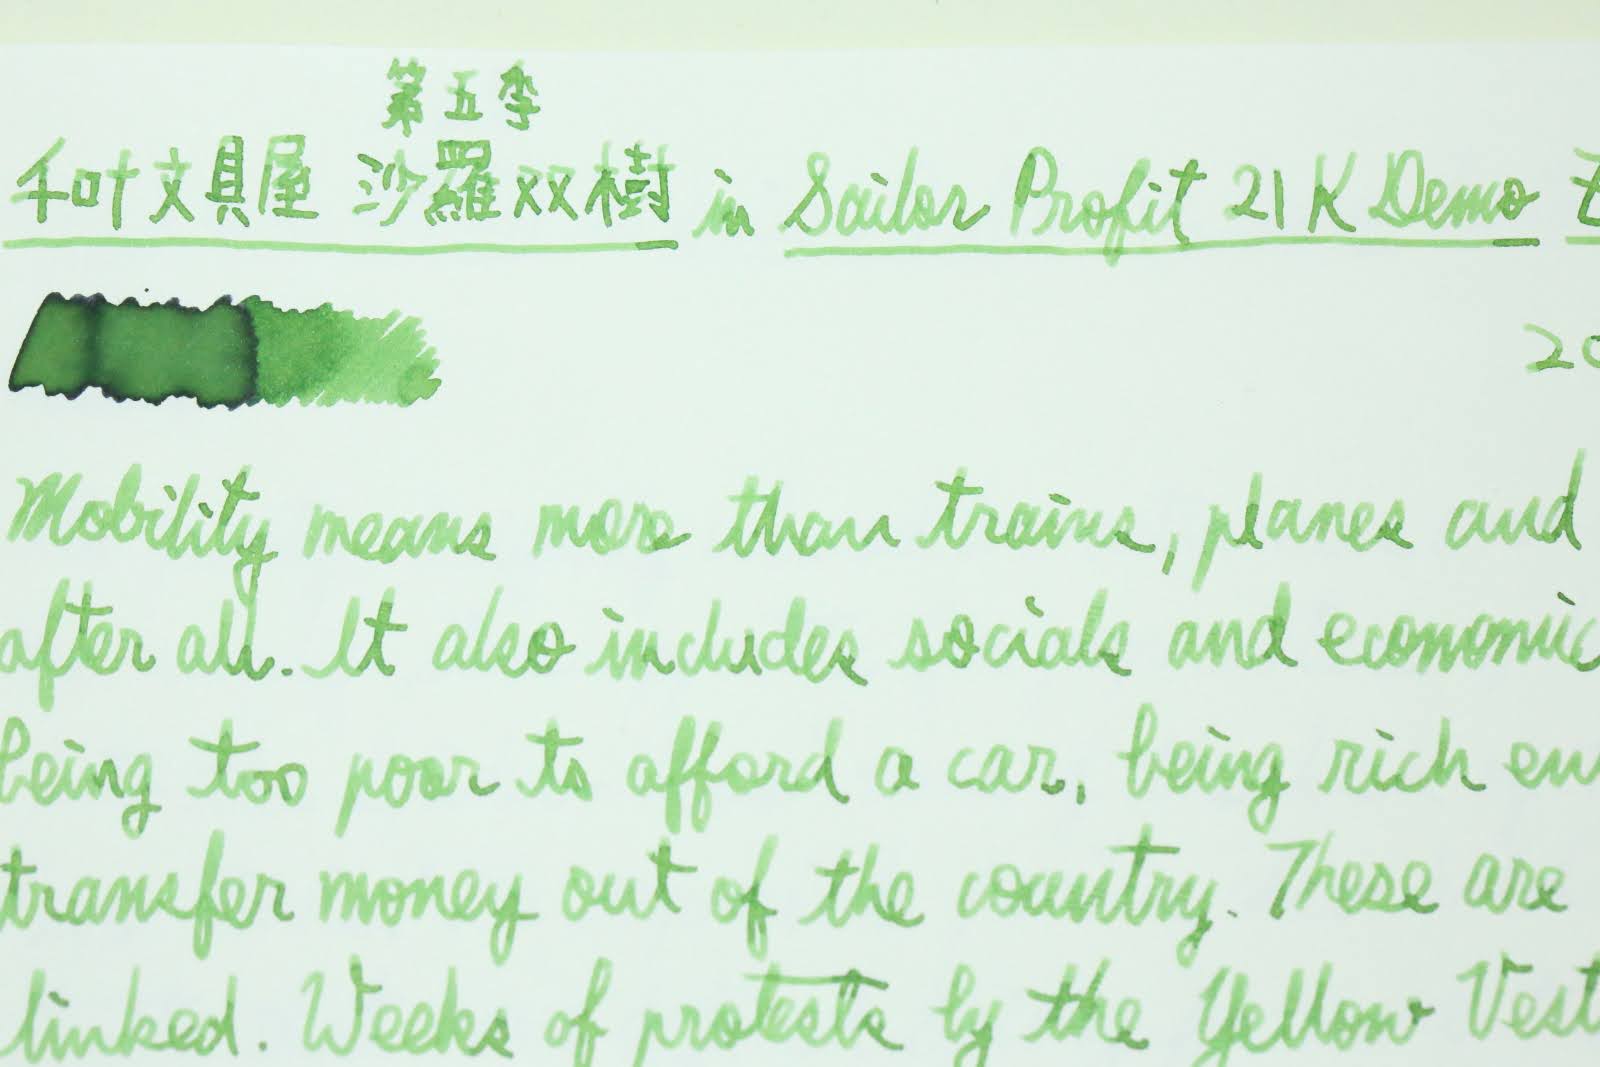 第五季
千叶文具屋 沙羅双樹 in Sailor Profit 21K Demo
20
Mobility means more than trains, planes and
after all. It also includes socials and economic
being too poor to afford a car, being rich en
transfer money out of the country. These are
linked. Weeks of protests by the Yellow Vest